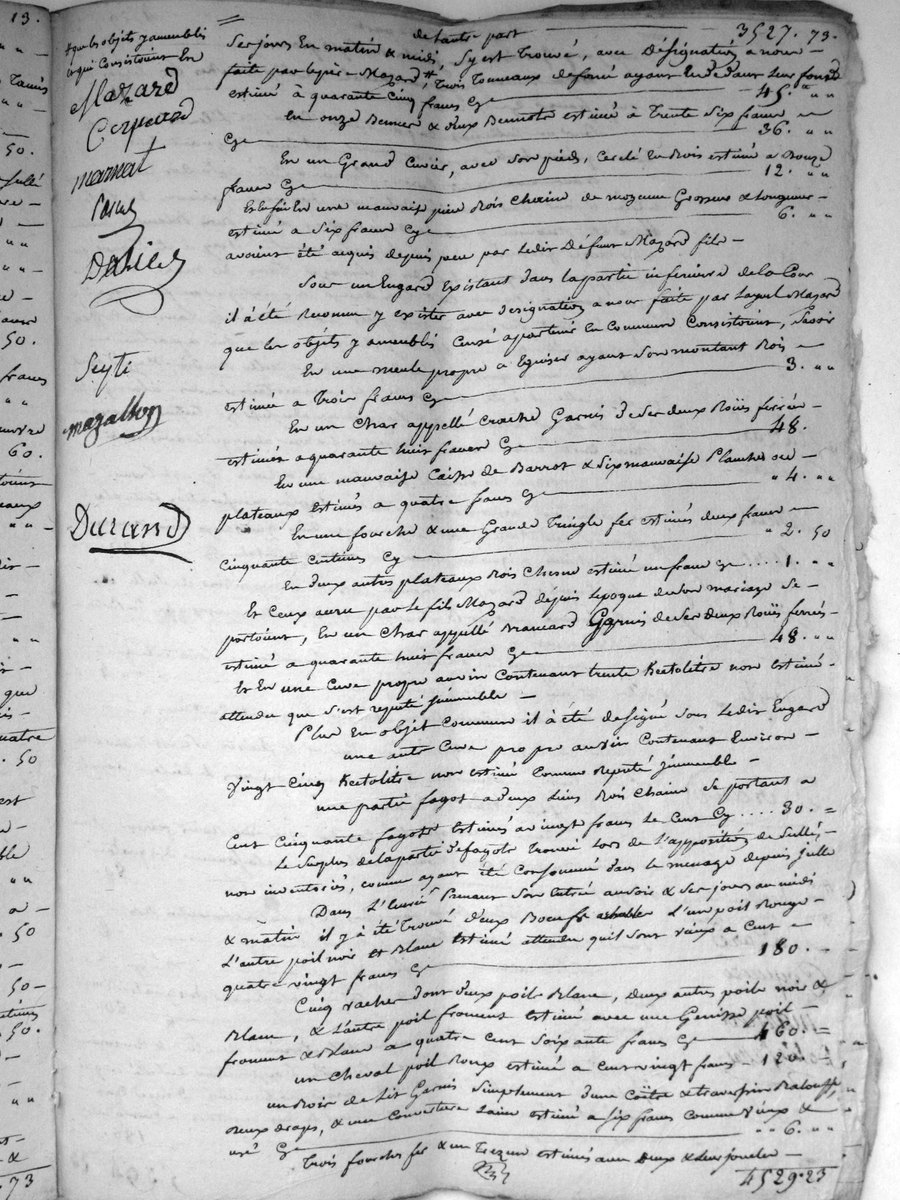 de l'autre part 3527. 73.
ses jours En matin & midi, s'y est Trouvé, avec Désignation a nous
faite par le père Mazard #, Trois Tonneaux de fonte ayant
estimé à quarante cinq francs Cy 45. " "
En onze Bennes & deux Bennots estimé à Trente Six francs
Cy 36. " "
En un Grand Cuvier, avec son pied, cerclé En Bois estimé a Douze
francs Cy 12. " "
Et En une mauvaise pièce Bois Chaine de moyenne Grosseur & Longueur
estimé a Six francs Cy 6. " "
avoient été acquis depuis peu par Ledit Défunt Mazard fils —
Sous un Engard Existant dans la partie inferieure de la Cour
il a été Reconnu y exister avec designation a nous faite par Mazard
que les objets y ameublés Censé apartenir En Commun Consistoient, Savoir
En une meule propre a Eguiser ayant Son montant Bois
estimée a Trois francs Cy 3. " "
En un Char appellé Garnis de Ses deux Roües ferrées
estimés a quarante huit francs Cy 48.
En une mauvaise Caisse de Barrot & Six mauvaise Planches ou
plateaux Estimés a quatre francs Cy " 4. " "
En une fourche & une Grande Tringle fer estimés deux francs
Cinquante Centimes Cy " 2. 50
En deux autres plateaux Bois Chesne estimé un franc Cy .... 1. " "
Et Ceux acquis par Le fils Mazard depuis l'epoque de Son mariage Se
portoient, En un Char appellé Brancard Garnis de Ses Deux Roües ferrées
estimé a quarante huit francs Cy 48. " "
Et En une Cuve propre au vin Contenant trente hectolitre non estimé
attendu que s'est reputé jmmeuble —
Plus En objet Commun il a été designé sous Ledit Engard
une autre Cuve propre au vin Contenant Environ
Vingt Cinq hectolitre non estimé Comme Reputé jmmeuble —
une partie fagot a deux Liens Bois Chaine Se portant a
Cent Cinquante fagots Estimés a vingt francs Le Cent Cy .... 30. =
Le Surplus de la partie de fagots Trouvé Lors de L'apposition de Scellés
non inventoriés, comme ayant été Consommé dans le menage depuis jcelle
Dans L'Ecurie Prenant Son Entrée au Soir & Ses jours au midi
& matin il y a été Trouvé deux Boeufs L'un poil Rouge
L'autre poil noir et Blanc Estimé attendu qu'il sont vieux a Cent
quatre vingt francs Cy 180.
Cinq vaches dont deux poils Blanc, Deux autres poils noir &
Blanc, & L'autre poil froment estimés avec une Genisse poil
froment & Blanc a quatre Cent Soixante francs Cy 460. =
un Cheval poil Roux estimé a Cent vingt francs 120.
un Bois de Lit Garnis Simplement d'une Coëtre & traversin
deux draps, & une Couverture Laine estimé a Six francs Comme Vieux &
usé Cy " " 6. " "
Trois fourches fer & un Trezain estimés avec Deux
4529. 23
# que les objets y ameublés
ce qui Consistoient En
Mazard
marnat
Seyti
mazallon
Durand